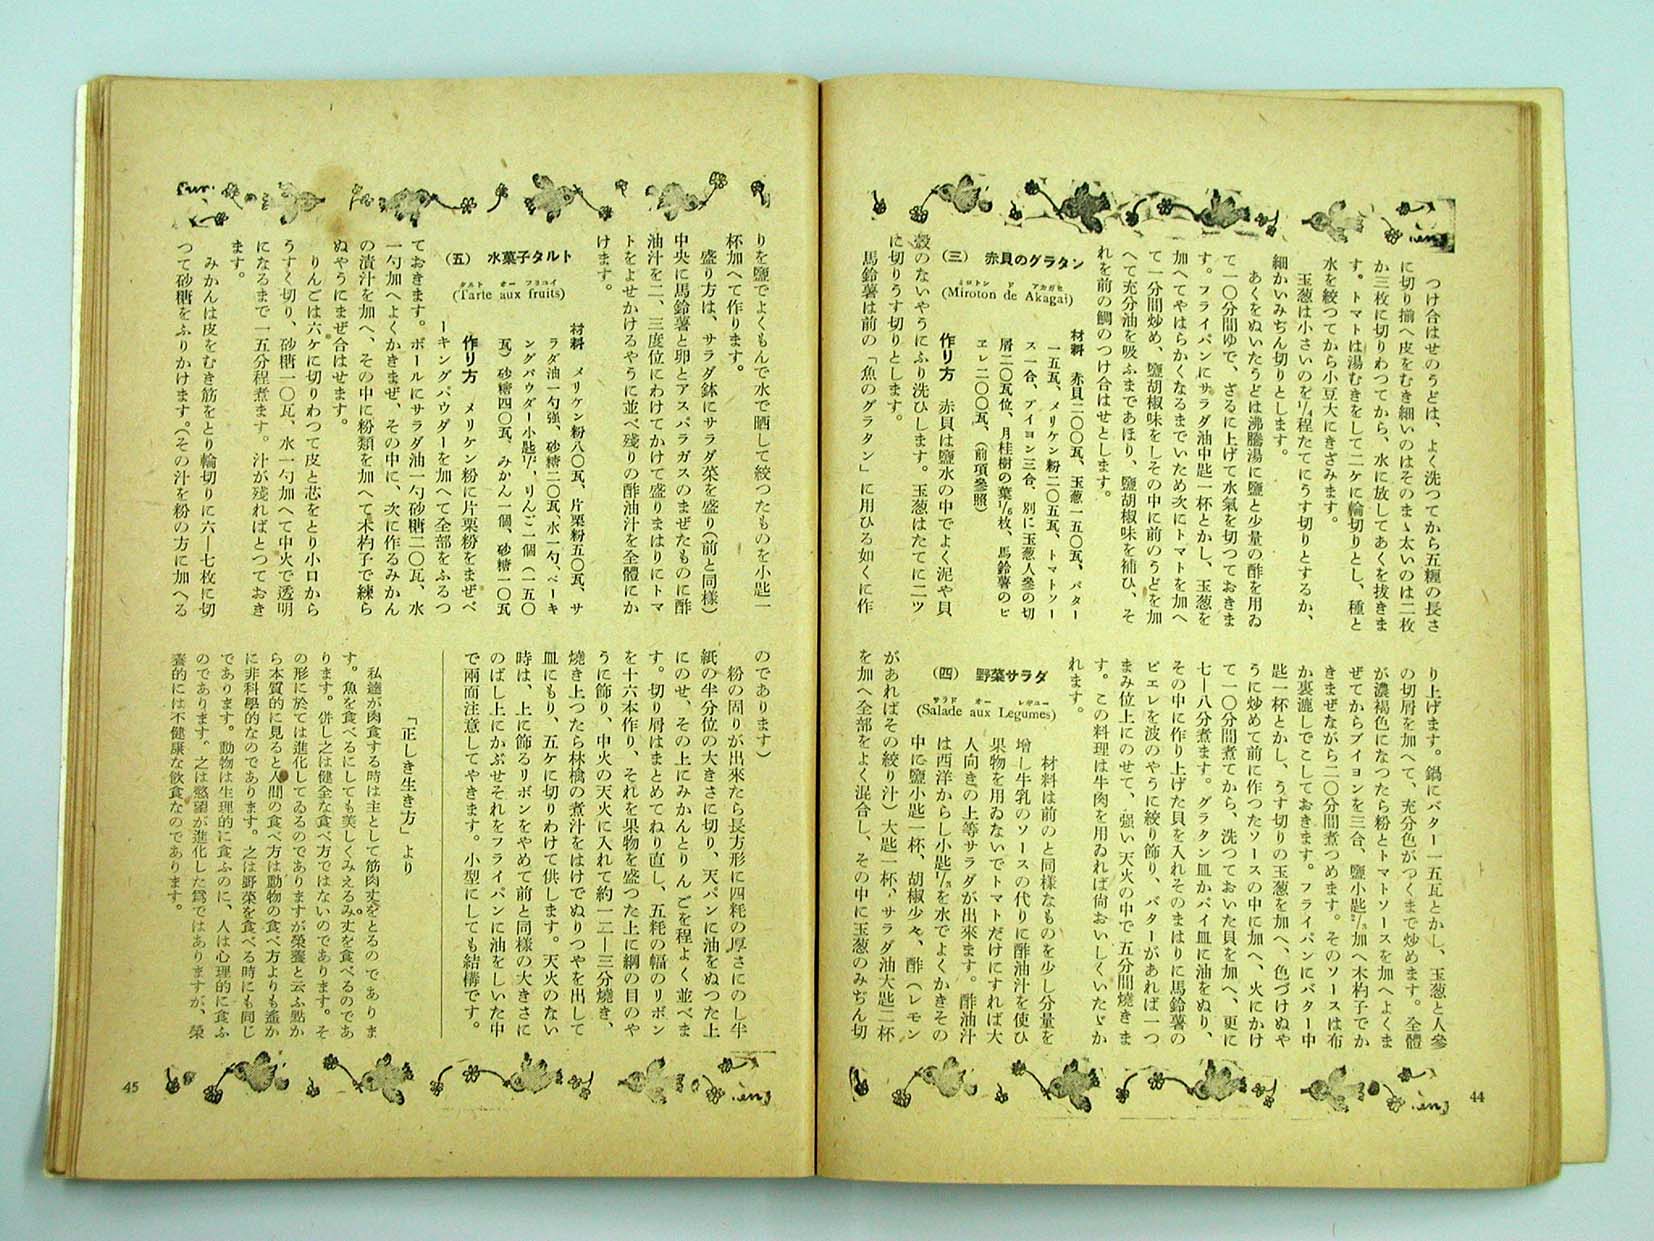 つけ合はせのうどは、よく洗つてから五糎の長さ
に切り揃へ皮をむき細いのはそのまゝ太いのは二枚
か三枚に切りわつてから、水に放してあくを抜きま
す。トマトは湯むきをして二ケに輪切りとし、種と
水を絞つてから小豆大にきざみます。
玉葱は小さいのを1/4程たてにうす切りとするか、
細かいみぢん切りとします。
あくをぬいたうどは沸騰湯に鹽と少量の酢を用ゐ
て一〇分間ゆで、ざるに上げて水氣を切つておきま
す。フライパンにサラダ油中匙一杯とかし、玉葱を
加へてやはらかくなるまでいため次にトマトを加へ
て一分間炒め、鹽胡椒味をしその中に前のうどを加
へて充分油を吸ふまであほり、鹽胡椒味を補ひ、そ
れを前の鯛のつけ合はせとします。
(三) 赤貝のグラタン
ミロトン ド アカガヒ
(Miroton de Akagai)
材料 赤貝二〇〇瓦、玉葱一五〇瓦、バター
一五瓦、メリケン粉二〇五瓦、トマトソー
ス一合、ブイヨン三合、別に玉葱人參の切
屑二〇瓦位、月桂樹の葉1/6枚、馬鈴薯のピ
ヱレ二〇〇瓦、(前項參照)
作り方 赤貝は鹽水の中でよく泥や貝
殼のないやうにふり洗ひします。玉葱はたてに二ツ
に切りうす切りとします。
馬鈴薯は前の「魚のグラタン」に用ひる如くに作
り上げます。鍋にバター一五瓦とかし、玉葱と人參
の切屑を加へて、充分色がつくまで炒めます。全體
が濃褐色になつたら粉とトマトソースを加へよくま
ぜてからブイヨンを三合、鹽小匙2/3加へ木杓子でか
きまぜながら二〇分間煮つめます。そのソースは布
か裏漉しでこしておきます。フライパンにバター中
匙一杯とかし、うす切りの玉葱を加へ、色づけぬや
うに炒めて前に作つたソースの中に加へ、火にかけ
て一〇分間煮てから、洗つておいた貝を加へ、更に
七—八分煮ます。グラタン皿かパイ皿に油をぬり、
その中に作り上げた貝を入れそのまはりに馬鈴薯の
ピエレを波のやうに絞り飾り、バターがあれば一つ
まみ位上にのせて、强い天火の中で五分間燒きま
す。この料理は牛肉を用ゐれば尙おいしくいたゞか
れます。
(四) 野菜サラダ
サラド オー レギユー
(Salade aux Legumes)
材料は前のと同樣なものを少し分量を
增し牛乳のソースの代りに酢油汁を使ひ
果物を用ゐないでトマトだけにすれば大
人向きの上等サラダが出來ます。酢油汁
は西洋からし小匙1/3を水でよくかきその
中に鹽小匙一杯、胡椒少々、酢(レモン
があればその絞り汁)大匙一杯、サラダ油大匙二杯
を加へ全部をよく混合し、その中に玉葱のみぢん切
44
りを鹽でよくもんで水で晒して絞つたものを小匙一
杯加へて作ります。
盛り方は、サラダ鉢にサラダ菜を盛り(前と同樣)
中央に馬鈴薯と卵とアスパラガスのまぜたものに酢
油汁を二、三度位にわけてかけて盛りまはりにトマ
トをよせかけるやうに並べ殘りの酢油汁を全體にか
けます。
(五) 水菓子タルト
タルト オー フリユイ
(Tarte aux fruits)
材料 メリケン粉八〇瓦、片栗粉五〇瓦、サ
ラダ油一勺强、砂糖二〇瓦、水一勺、ベーキ
ングパウダー小匙1/2、りんご一個(一五〇
瓦)砂糖四〇瓦、みかん一個、砂糖一〇瓦
作り方 メリケン粉に片栗粉をまぜベ
ーキングパウダーを加へて全部をふるつ
ておきます。ボールにサラダ油一勺砂糖二〇瓦、水
一勺加へよくかきまぜ、その中に、次に作るみかん
の漬汁を加へ、その中に粉類を加へて木杓子で練ら
ぬやうにまぜ合はせます。
りんごは六ケに切りわつて皮と芯をとり小口から
うすく切り、砂糖一〇瓦、水一勺加へて中火で透明
になるまで一五分程煮ます。汁が殘ればとつておき
ます。
みかんは皮をむき筋をとり輪切りに六—七枚に切
つて砂糖をふりかけます。(その汁を粉の方に加へる
のであります)
粉の固りが出來たら長方形に四粍の厚さにのし半
紙の半分位の大きさに切り、天パンに油をぬつた上
にのせ、その上にみかんとりんごを程よく並べま
す。切り屑はまとめてねり直し、五粍の幅のリボン
を十六本作り、それを果物を盛つた上に綱の目のや
うに飾り、中火の天火に入れて約一二—三分燒き、
燒き上つたら林檎の煮汁をはけでぬりつやを出して
皿にもり、五ケに切りわけて供します。天火のない
時は、上に飾るリボンをやめて前と同樣の大きさに
のばし上にかぶせそれをフライパンに油をしいた中
で兩面注意してやきます。小型にしても結構です。
「正しき生き方」より
私達が肉食する時は主として筋肉丈をとるのであり
ます。魚を食べるにしても美しくみえるみ丈を食べるのであ
ります。併し之は健全な食べ方ではないのであります。そ
の形に於ては進化してゐるのでありますが榮養と云ふ點か
ら本質的に見ると人間の食べ方は動物の食べ方よりも遙か
に非科學的なのであります。之は野菜を食べる時にも同じ
であります。動物は生理的に食ふのに、人は心理的に食ふ
のであります。之は慾望が進化した爲ではありますが、榮
養的には不健康な飮食なのであります。
45